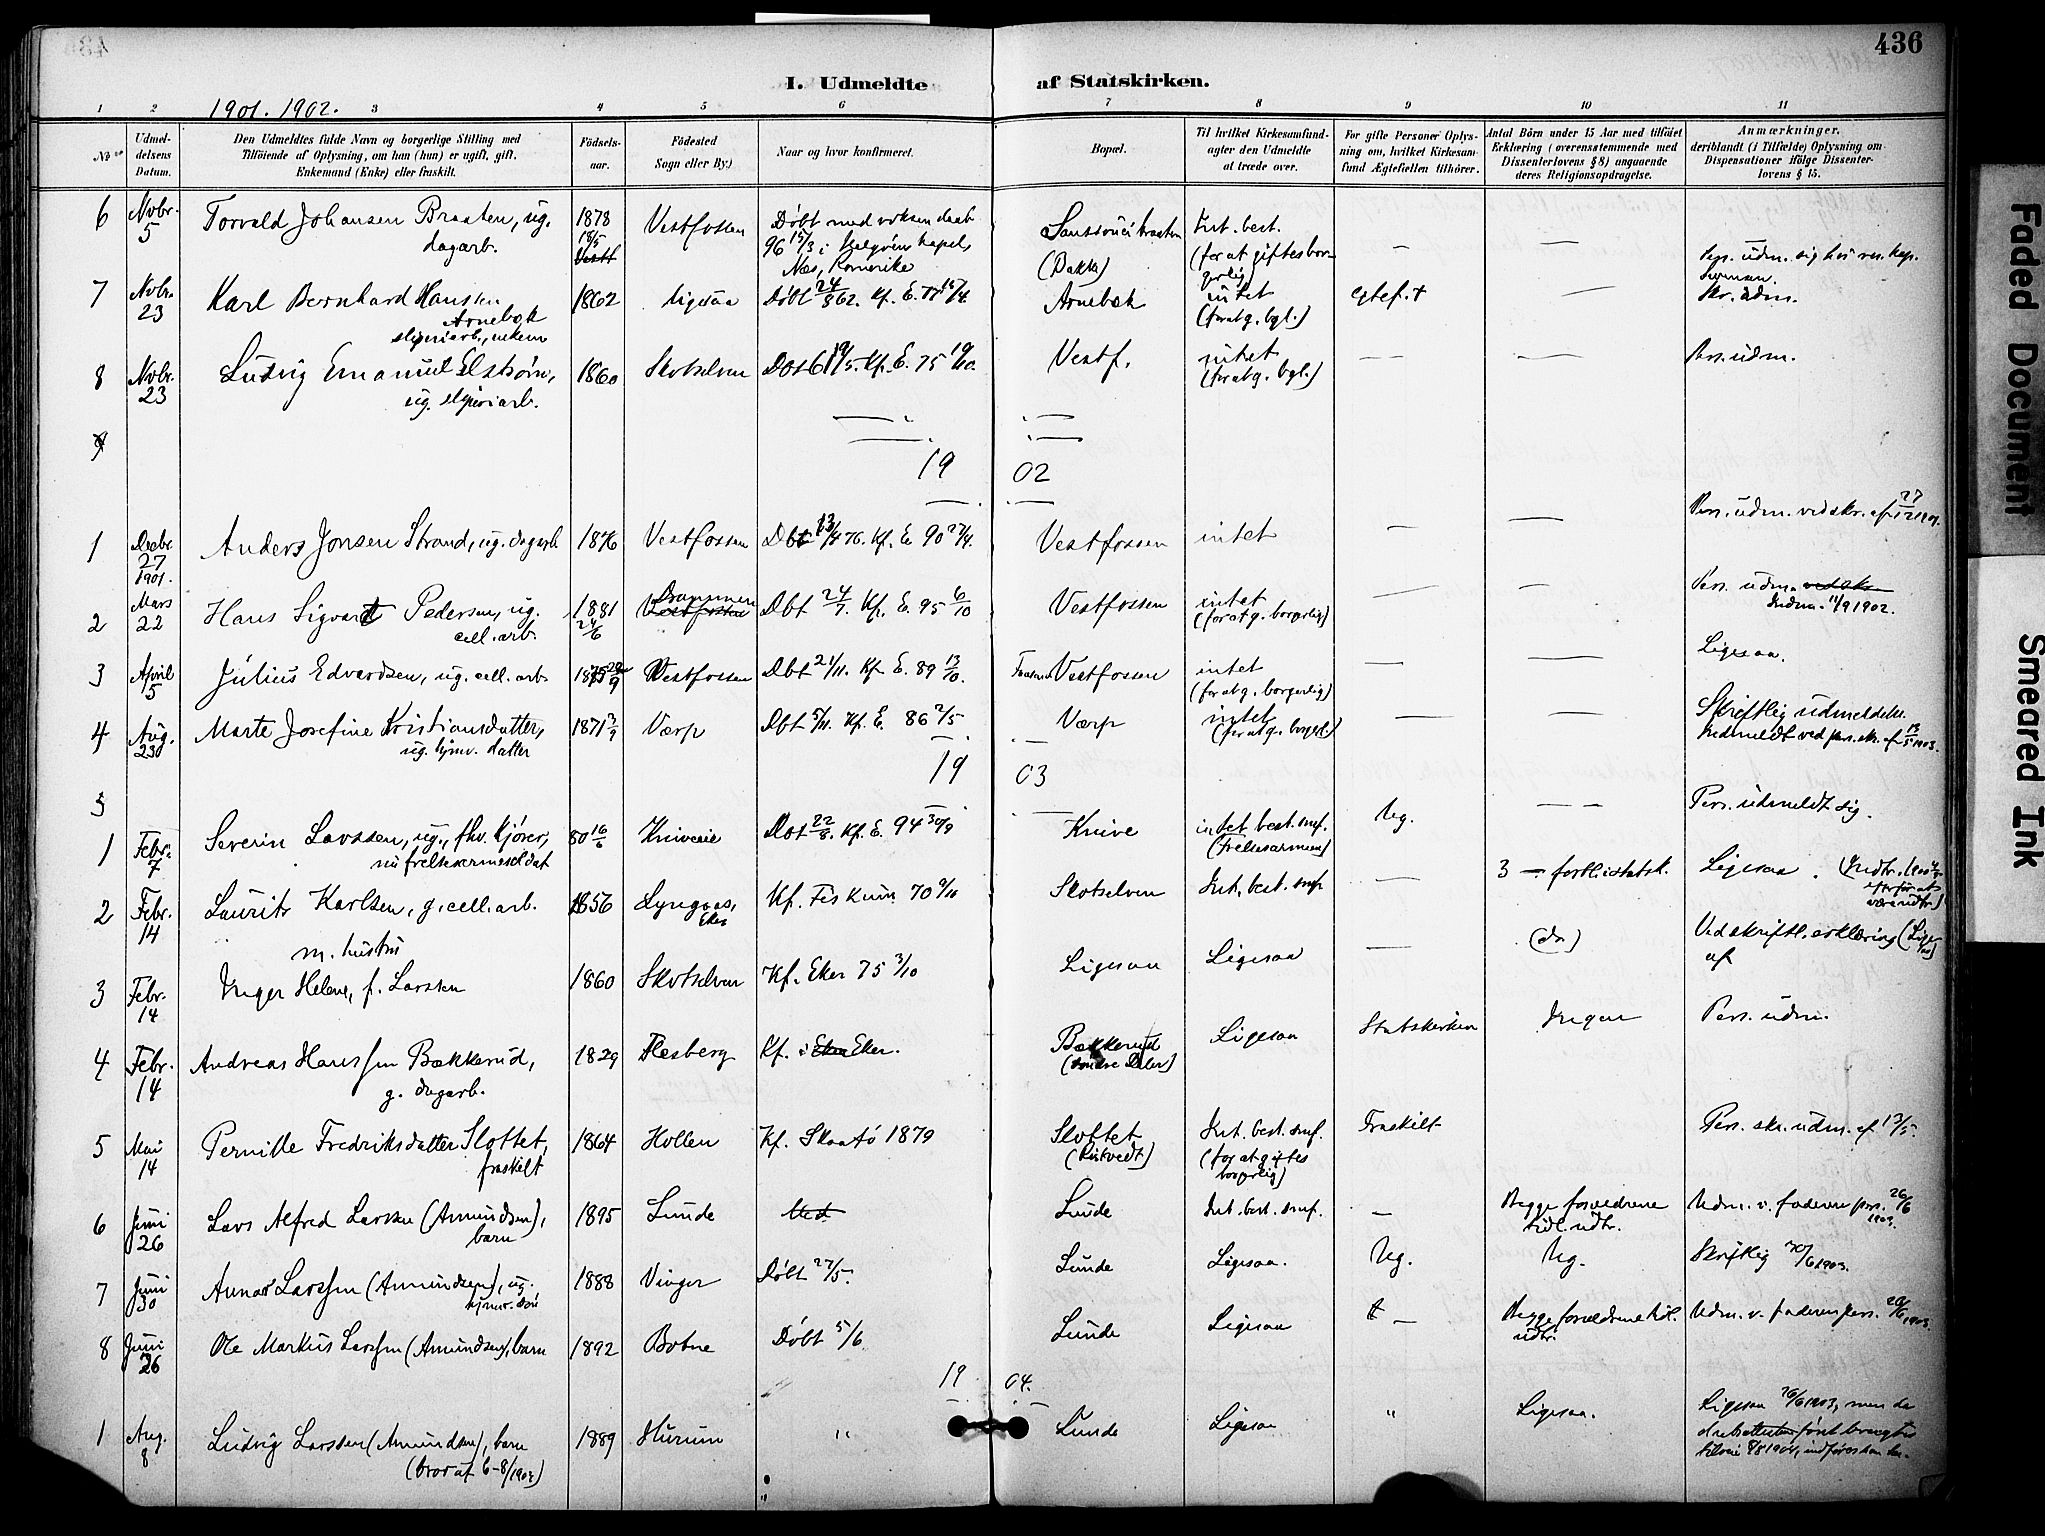 436
I. Udmeldte af Statskirken.
1901. 1902.
1 2 3 4 5 6 7 8 9 10 11
No
Udmel-
delsens
Datum.
Den Udmeldtes fulde Navn og borgerlige Stilling med
Tilföiende af Oplysning, om han (hun) er ugift, gift,
Enkemand (Enke) eller fraskilt.
Födsels-
aar.
Födested
Sogn eller By.)
Naar og hvor konfirmeret.
Bopæl.
Til hvilket Kirkesamfund-
agter den Udmeldte
at træde over.
For gifte Personer Oplys-
ning om, hvilket Kirkesam-
fund Ægtefællen tilhörer.
Antal Börn under 15 Aar med tilföiet
Erklæring (overensstemmende med
Dissenterlovens § 8) angaaende
deres Religionsopdragelse.
Anmærkninger,
deriblandt (i Tilfælde) Oplysning om
Dispensationer ifölge Dissenter-
lovens § 15.
6 Novbr. 5 Torvald Johansen Braaten, ug. dagarb. 1878 18/5 Vestfossen Døbt med voksen daab
96 15/3 i kapel,
Næs, Romerike
(Bakke) Int. best.
(for at giftes bor-
gerlig) — — Pers. udm. sig hos res. kap.
7 Novbr. 23 Karl Bernhard Hanssen
Arnebæk
sliperiarb., enkem. 1862 ligesaa Døbt 24/8 62. Kf. E. 77 15/4. Arnebæk intet
(for at g. bgl.) egtef. † — Skr. udm.
8 Novbr. 23 Ludvig Emanuel Elstrøm,
ug. sliperiarb. 1860 Skotselven 61 19/5. Kf. E. 75 10/10. Vestf. intet
(for at g. bgl.) — — — Pers. udm.
9
1902
1 Decbr. 27 1901. Anders Jonsen Strand, ug. dagarb. 1876 Vestfossen Dbt 13/4 76. Kf. E. 90 27/4. Vestfossen intet — — Pers. udm. ved skr. af 27/12 1901.
2 Mars 22 Hans Sigvart Pedersen, ug.
cell. arb. 1881 24/6 Drammen
Vestfossen Dbt 24/7. Kf. E. 95 6/10 Vestfossen intet
(for at g. borgerlig) — — Pers. udm. ved skr.
Indm. 11/9 1902.
3 April 5 Julius Edvardsen, ug. cell. arb. 1875 Vestfossen Dbt 21/11. Kf. E. 89 13/10. Vestfossen intet
(for at g. borgerlig) — — Ligesaa.
4 Aug. 23 Marte Josefine Kristiansdatter,
ug. hjmv. datter 1871 Værp Dbt 5/11. Kf. E. 86 2/5 Værp intet
(for at g. borgerl.) — — Skriftlig udmeldelse.
Indmeldt ved pers. skr. af 13/5 1903.
1903
5
1 Febr. 7 Severin Larssen, ug., fhv. kjører,
nu frelsesarmesoldat 80 16/6 Kniveeie Dbt 22/8. Kf. E. 94 30/9 Knive intet best. smf.
(Frelsesarmeen) Ug. — — Pers. udmeldt sig.
2 Febr. 14 Laurits Karlsen, g. cell. arb.
m. hustru 1856 Lyngaas,
Eker Kf. Fiskum 70 9/10 Skotselven Int. best. smf. — 3 — forbl. i statsk. Ligesaa.
3 Febr. 14 Inger Helene, f. Larssen 1860 Skotselven Kf. Eker 75 3/10 Ligesaa Ligesaa — (do) Ved skriftl. erklæring
af
4 Febr. 14 Andreas Hanssen Bækkerud,
g. dagarb. 1829 Flesberg Kf. i Eker. Bækkerud Ligesaa Statskirken Ingen Pers. udm.
5 Mai 14 Pernille Fredriksdatter Slottet,
fraskilt 1864 Hollen Kf. Skaatø 1879 Slottet Int. best. smf.
(for at giftes
borgerlig) Fraskilt Pers. skr. udm. af 13/5.
6 Juni 26 Lars Alfred Larssen (Amundsen),
barn 1895 Lunde Lunde Int. best. smf. — Begge forældrene
tidl. udtr. Udm. v. faderen pers. 26/6
1903.
7 Juni 30 Larssen (Amundsen), ug. 1888 Vinger Døbt 27/5. Lunde Ligesaa. Ug. Ug. Skriftlig 30/6 1903.
8 Juni 26 Ole Markus Larssen (Amundsen), barn 1892 Botne Døbt 5/6 Lunde Ligesaa — Begge forældrene tidl.
udtr. Udm. v. faderen pers. 26/6 1903.
1904.
1 Aug. 8 Ludvig Larssen (Amundsen), barn
(bror af 6-8/1903) 1889 Hurum " Lunde Ligesaa " Ligesaa. Ligesaa 26/6 1903, men da
Faded Document
Smeared Ink